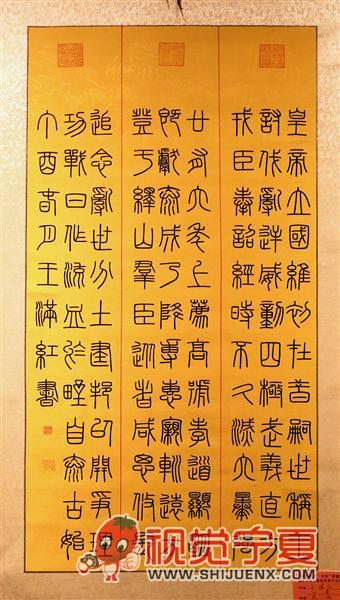 皇帝立國維初在昔嗣世稱王
討伐亂逆威動四極武義直方
戎臣奉詔經時不久滅六暴強
廿有六年上薦高號孝道顯明
既獻泰成乃降專惠寴巡遠方
登于繹山羣臣從者咸思攸長
追念亂世分土建邦以開爭理
功戰日作流血於野自泰古始
丁酉春月王滿紅書
视觉宁夏
WWW.SHIJUENX.COM